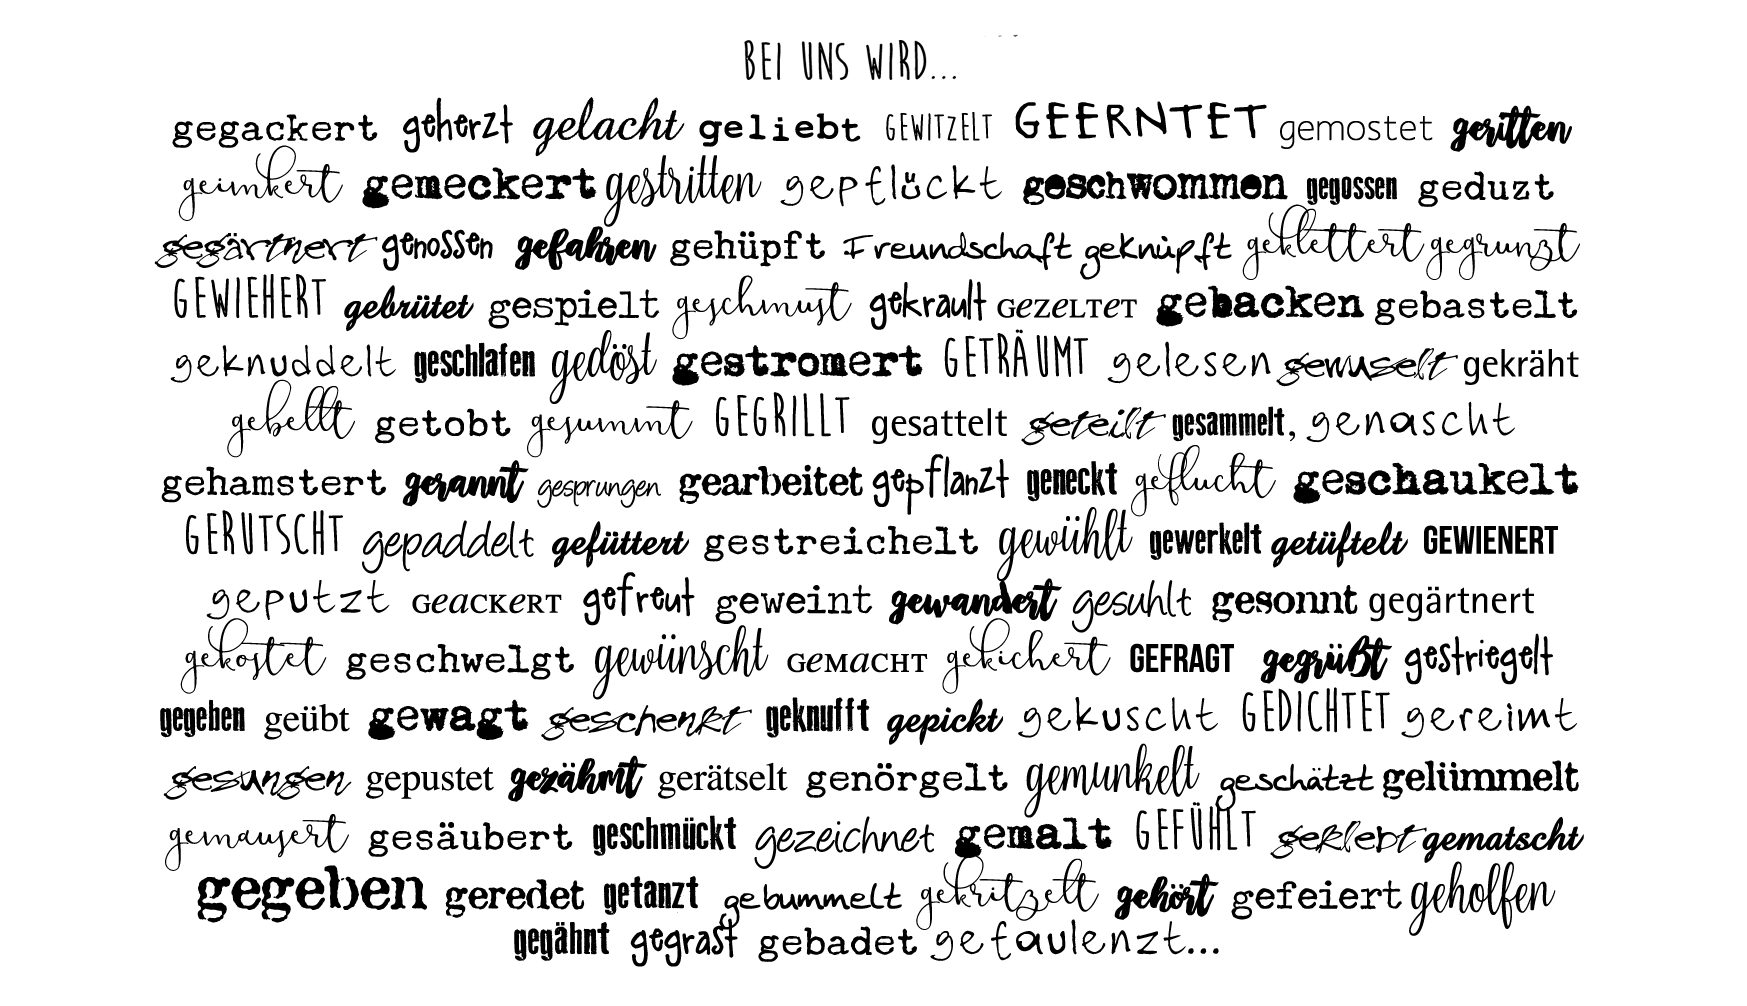 BEI UNS WIRD...
gegackert geherzt gelacht geliebt GEWITZELT GEERNTET gemostet geritten
geimkert gemeckert gestritten gepflückt geschwommen gegossen geduzt
gegärtnert genossen gefahren gehüpft Freundschaft geknüpft geklettert gegrunzt
GEWIEHERT gebrütet gespielt geschmust gekrault GEZELTET gebacken gebastelt
geknuddelt geschlafen gedöst gestromert GETRÄUMT gelesen gewuselt gekräht
gebellt getobt gesummt GEGRILLT gesattelt geteilt gesammelt, genascht
gehamstert gerannt gesprungen gearbeitet gepflanzt geneckt geflucht geschaukelt
GERUTSCHT gepaddelt gefüttert gestreichelt gewühlt gewerkelt getüftelt GEWIENERT
geputzt GeaCKeRT gefreut geweint gewandert gesuhlt gesonnt gegärtnert
gekostet geschwelgt gewünscht GeMaCHT gekichert GEFRAGT gegrüßt gestriegelt
gegeben geübt gewagt geschenkt geknufft gepickt gekuscht GEDICHTET gereimt
gesungen gepustet gezähmt gerätselt genörgelt gemunkelt geschätzt gelümmelt
gemausert gesäubert geschmückt gezeichnet gemalt GEFÜHLT geklebt gematscht
gegeben geredet getanzt gebummelt gekritzelt gehört gefeiert geholfen
gegähnt gegrast gebadet gefaulenzt...